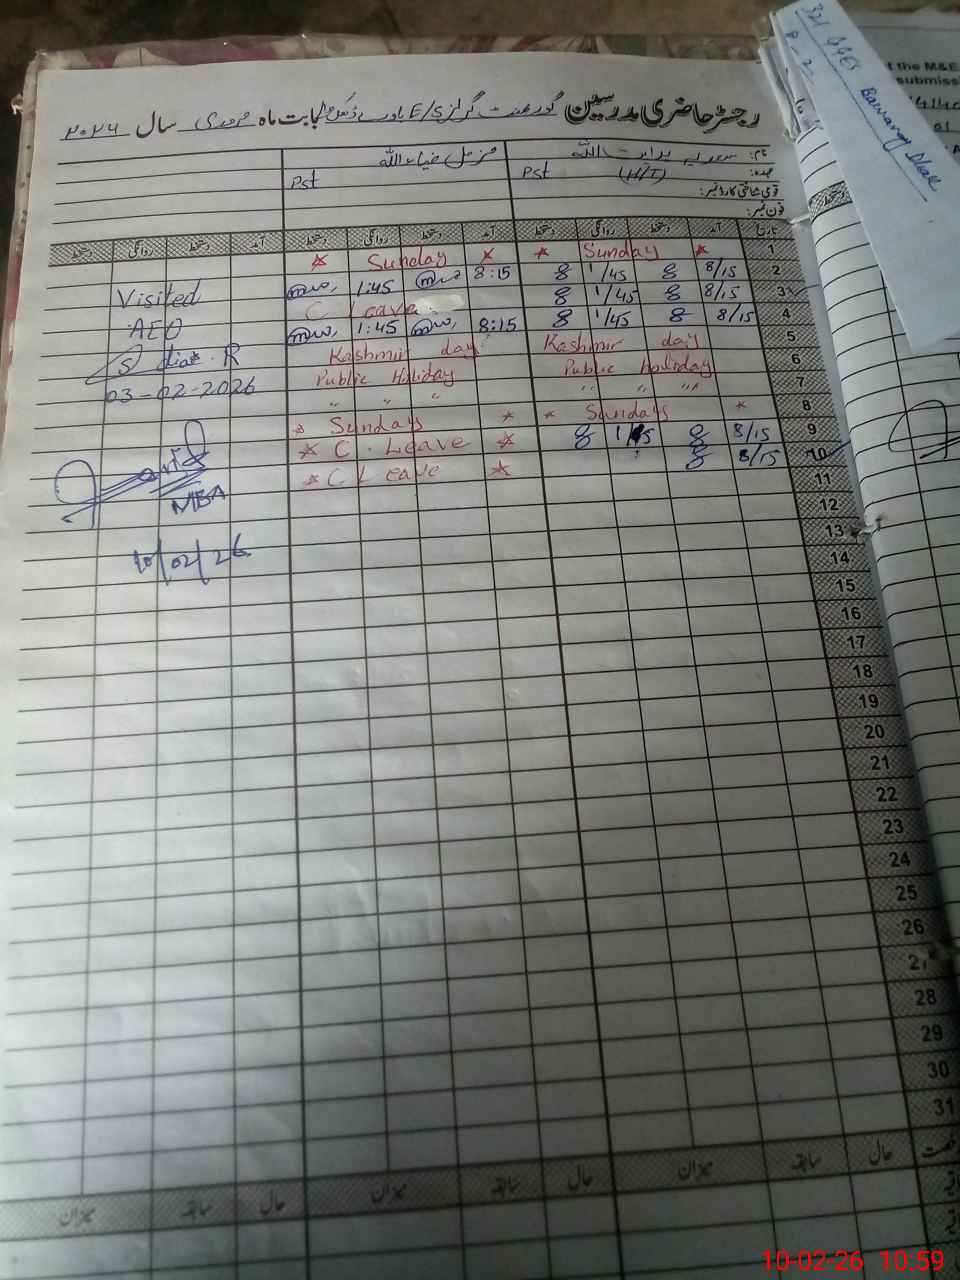 رجسٹر حاضری مدرسین گورنمنٹ گرلز E/S بابت ماہ فروری سال ۲۰۲۶
نام: ہدایت اللہ ضیاء اللہ
عہدہ: Pst (H/T) Pst
قومی شناختی کارڈ نمبر:
فون نمبر:
تاریخ آمد دستخط روانگی دستخط آمد دستخط روانگی دستخط آمد دستخط روانگی دستخط
1 * Sunday * * Sunday *
2 8/15 1/45 8:15 1:45
3 8/15 1/45 C Leave
4 8/15 1/45 8:15 1:45
5 Kashmir day Kashmir day
6 Public holiday Public Holiday
7 " " " " " "
8 * Sundays * * Sundays *
9 8/15 1/45 * C. Leave *
10 8/15 * C Leave *
11
12
13
14
15
16
17
18
19
20
21
22
23
24
25
26
27
28
29
30
31
حال سابقہ میزان حال سابقہ میزان حال سابقہ میزان
Visited
AEO
03-02-2026
MEA
10/02/26
321 GGES
Bawaray Dhak
P-2
t the M&E
submiss
10-02-26 10:59